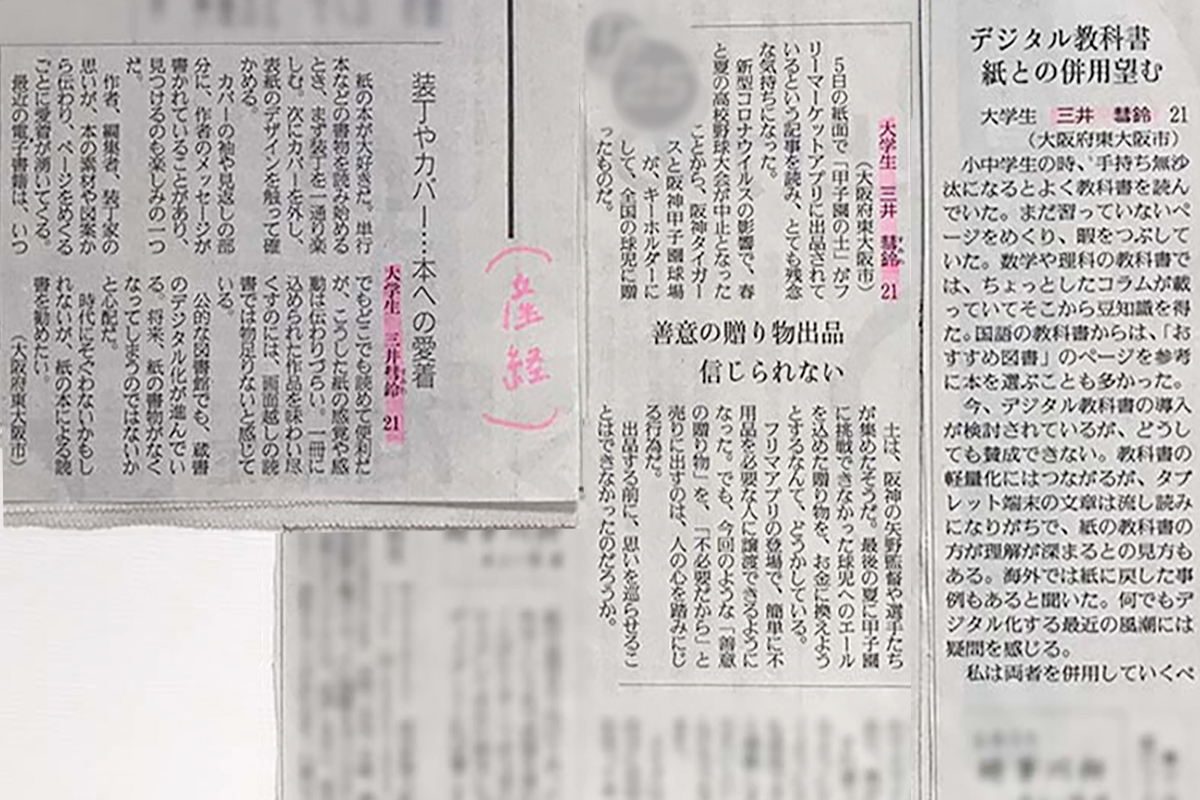 装丁やカバー…本への愛着
大学生 三井彗鈴 21
紙の本が大好きだ。単行
本などの書物を読み始める
とき、まず装丁を一通り楽
しむ。次にカバーを外し、
表紙のデザインを触って確
かめる。
カバーの袖や見返しの部
分に、作者のメッセージが
書かれていることがあり、
見つけるのも楽しみの一つ
だ。
作者、編集者、装丁家の
思いが、本の素材や図案か
ら伝わり、ページをめくる
ごとに愛着が湧いてくる。
最近の電子書籍は、いつ
でもどこでも読めて便利だ
が、こうした紙の感覚や感
動は伝わりづらい。一冊に
込められた作品を味わい尽
くすのには、画面越しの読
書では物足りないと感じて
いる。
公的な図書館でも、蔵書
のデジタル化が進んでい
る。将来、紙の書物がなく
なってしまうのではないか
と心配だ。
時代にそぐわないかもし
れないが、紙の本による読
書を勧めたい。
（大阪府東大阪市）
（産経）
善意の贈り物出品
信じられない
大学生 三井 彗鈴 21
（大阪府東大阪市）
5日の紙面で「甲子園の土」がフ
リーマーケットアプリに出品されて
いるという記事を読み、とても残念
な気持ちになった。
新型コロナウイルスの影響で、春
と夏の高校野球大会が中止となった
ことから、阪神タイガー
スと阪神甲子園球場
が、キーホルダーに
して、全国の球児に贈
ったものだ。
土は、阪神の矢野監督や選手たち
が集めたそうだ。最後の夏に甲子園
に挑戦できなかった球児へのエール
を込めた贈り物を、お金に換えよう
とするなんて、どうかしている。
フリマアプリの登場で、簡単に不
用品を必要な人に譲渡できるように
なった。でも、今回のような「善意
の贈り物」を、「不必要だから」と
売りに出すのは、人の心を踏みにじ
る行為だ。
出品する前に、思いを巡らせるこ
とはできなかったのだろうか。
デジタル教科書
紙との併用望む
大学生 三井 彗鈴 21
（大阪府東大阪市）
小中学生の時、手持ち無沙
汰になるとよく教科書を読ん
でいた。まだ習っていないペ
ージをめくり、暇をつぶして
いた。数学や理科の教科書で
は、ちょっとしたコラムが載
っていてそこから豆知識を得
た。国語の教科書からは、「お
すすめ図書」のページを参考
に本を選ぶことも多かった。
今、デジタル教科書の導入
が検討されているが、どうし
ても賛成できない。教科書の
軽量化にはつながるが、タブ
レット端末の文章は流し読み
になりがちで、紙の教科書の
方が理解が深まるとの見方も
ある。海外では紙に戻した事
例もあると聞いた。何でもデ
ジタル化する最近の風潮には
疑問を感じる。
私は両者を併用していくべ